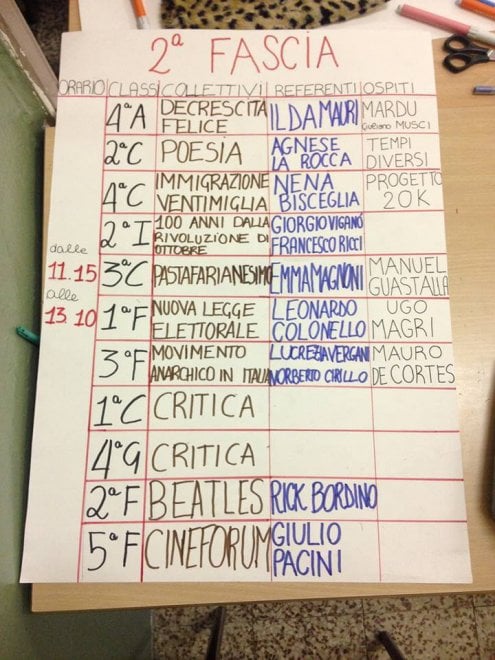 2ª FASCIA
ORARIO CLASSI COLLETTIVI REFERENTI OSPITI
4ªA DECRESCITA FELICE ILDA MAURI MARDU Giuliano MUSCI
2ªC POESIA AGNESE LA ROCCA TEMPI DIVERSI
4ªC IMMIGRAZIONE VENTIMIGLIA NENA BISCEGLIA PROGETTO 20K
2ªI 100 ANNI DALLA RIVOLUZIONE DI OTTOBRE GIORGIO VIGANÓ FRANCESCO RICCI
dalle 11.15 alle 13.10
3ªC PASTAFARIANESIMO EMMA MAGNONI MANUEL GUASTALLA
1ªF NUOVA LEGGE ELETTORALE LEONARDO COLONELLO UGO MAGRI
3ªF MOVIMENTO ANARCHICO IN ITALIA LUCREZIA VERGANI NORBERTO CIRILLO MAURO DE CORTES
1ªC CRITICA
4ªG CRITICA
2ªF BEATLES RICK BORDINO
5ªF CINEFORUM GIULIO PACINI